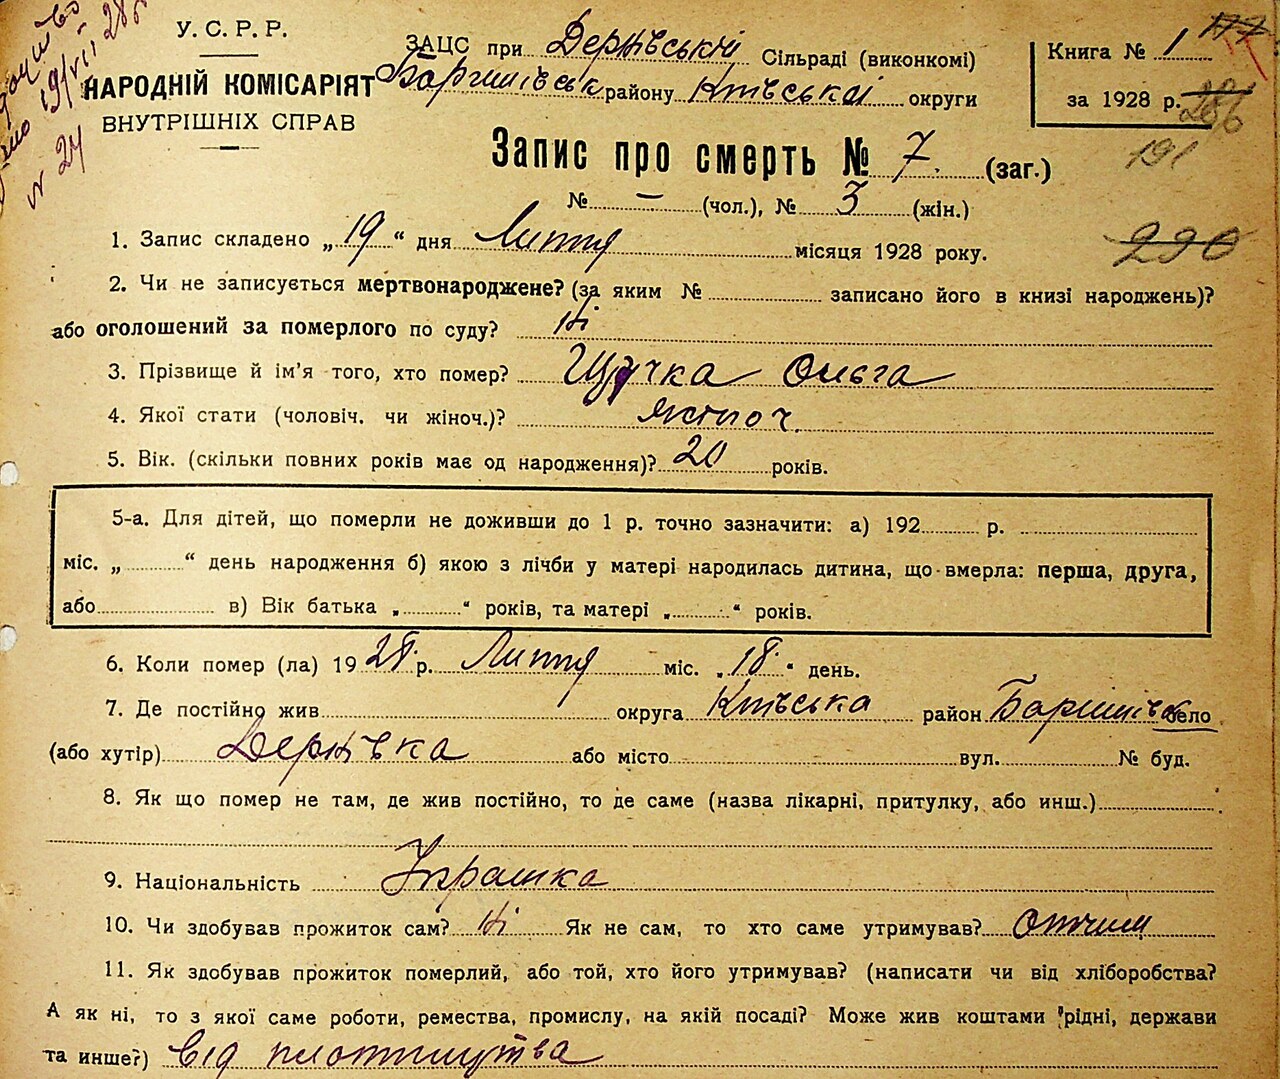 У. С. Р. Р.
НАРОДНІЙ КОМІСАРІЯТ
ВНУТРІШНІХ СПРАВ
19/VII 28
№ 24
ЗАЦС при Дернівській Сільраді (виконкомі)
Баришівськ району Київської округи
Книга № 1
за 1928 р. 286
191
290
Запис про смерть № 7 (заг.)
№ — (чол.), № 3 (жін.)
1. Запис складено „19“ дня Лютня місяця 1928 року.
2. Чи не записується мертвонароджене? (за яким № записано його в книзі народжень)?
або оголошений за померлого по суду? Ні
3. Прізвище й ім'я того, хто помер? Щучка Ольга
4. Якої стати (чоловіч. чи жіноч.)? жіноч.
5. Вік. (скільки повних років має од народження)? 20 років.
5-а. Для дітей, що померли не доживши до 1 р. точно зазначити: а) 192 р.
міс. „ “ день народження б) якою з лічби у матері народилась дитина, що вмерла: перша, друга,
або в) Вік батька „ “ років, та матері „ “ років.
6. Коли помер (ла) 1928 р. Лютня міс. „18“ день.
7. Де постійно жив округа Київська район Баришівськ село
(або хутір) Дернівка або місто вул. № буд.
8. Як що помер не там, де жив постійно, то де саме (назва лікарні, притулку, або инш.)
9. Національність Українка
10. Чи здобував прожиток сам? Ні Як не сам, то хто саме утримував? Отчим
11. Як здобував прожиток померлий, або той, хто його утримував? (написати чи від хліборобства?
А як ні, то з якої саме роботи, ремества, промислу, на якій посаді? Може жив коштами рідні, держави
та инше?) Від плотництва